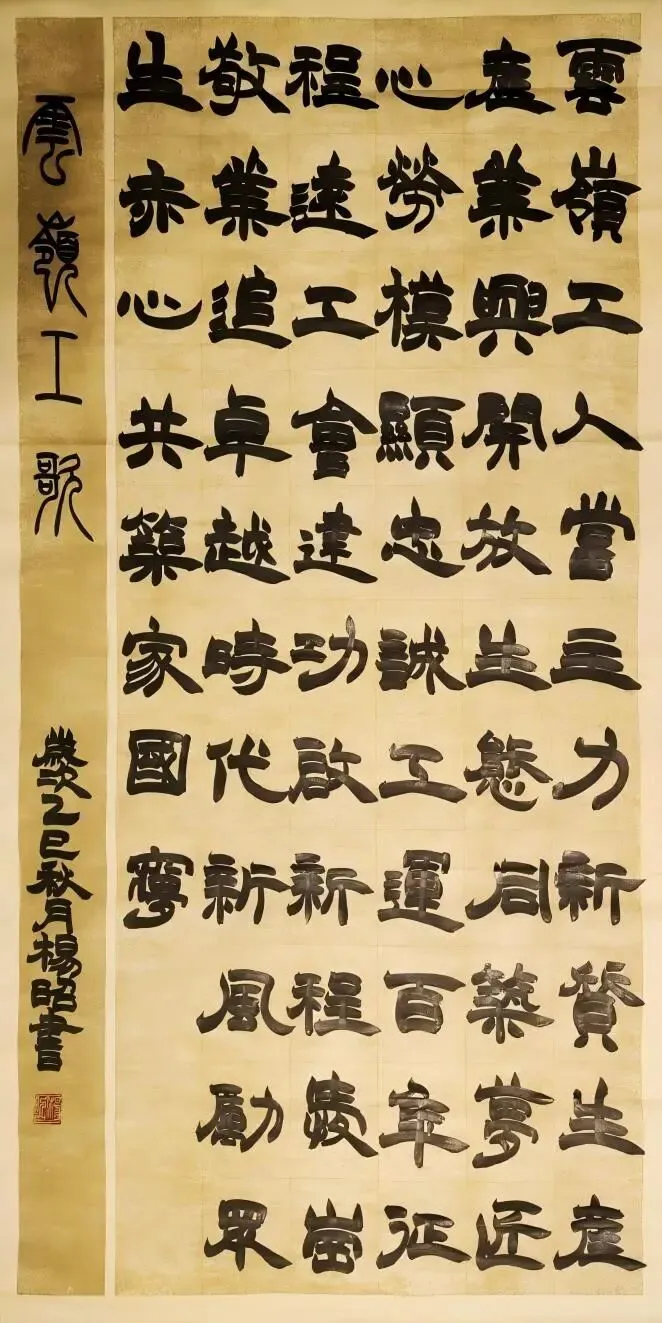 雲嶺工人當主力新質生産
産業興開放生態同築夢匠
心勞模顯忠誠工運百年征
程遠工會建功啟新程愛崗
敬業追卓越時代新風勵眾
生赤心共築家國寧
雲嶺工歌
歲次乙巳秋月楊昭書